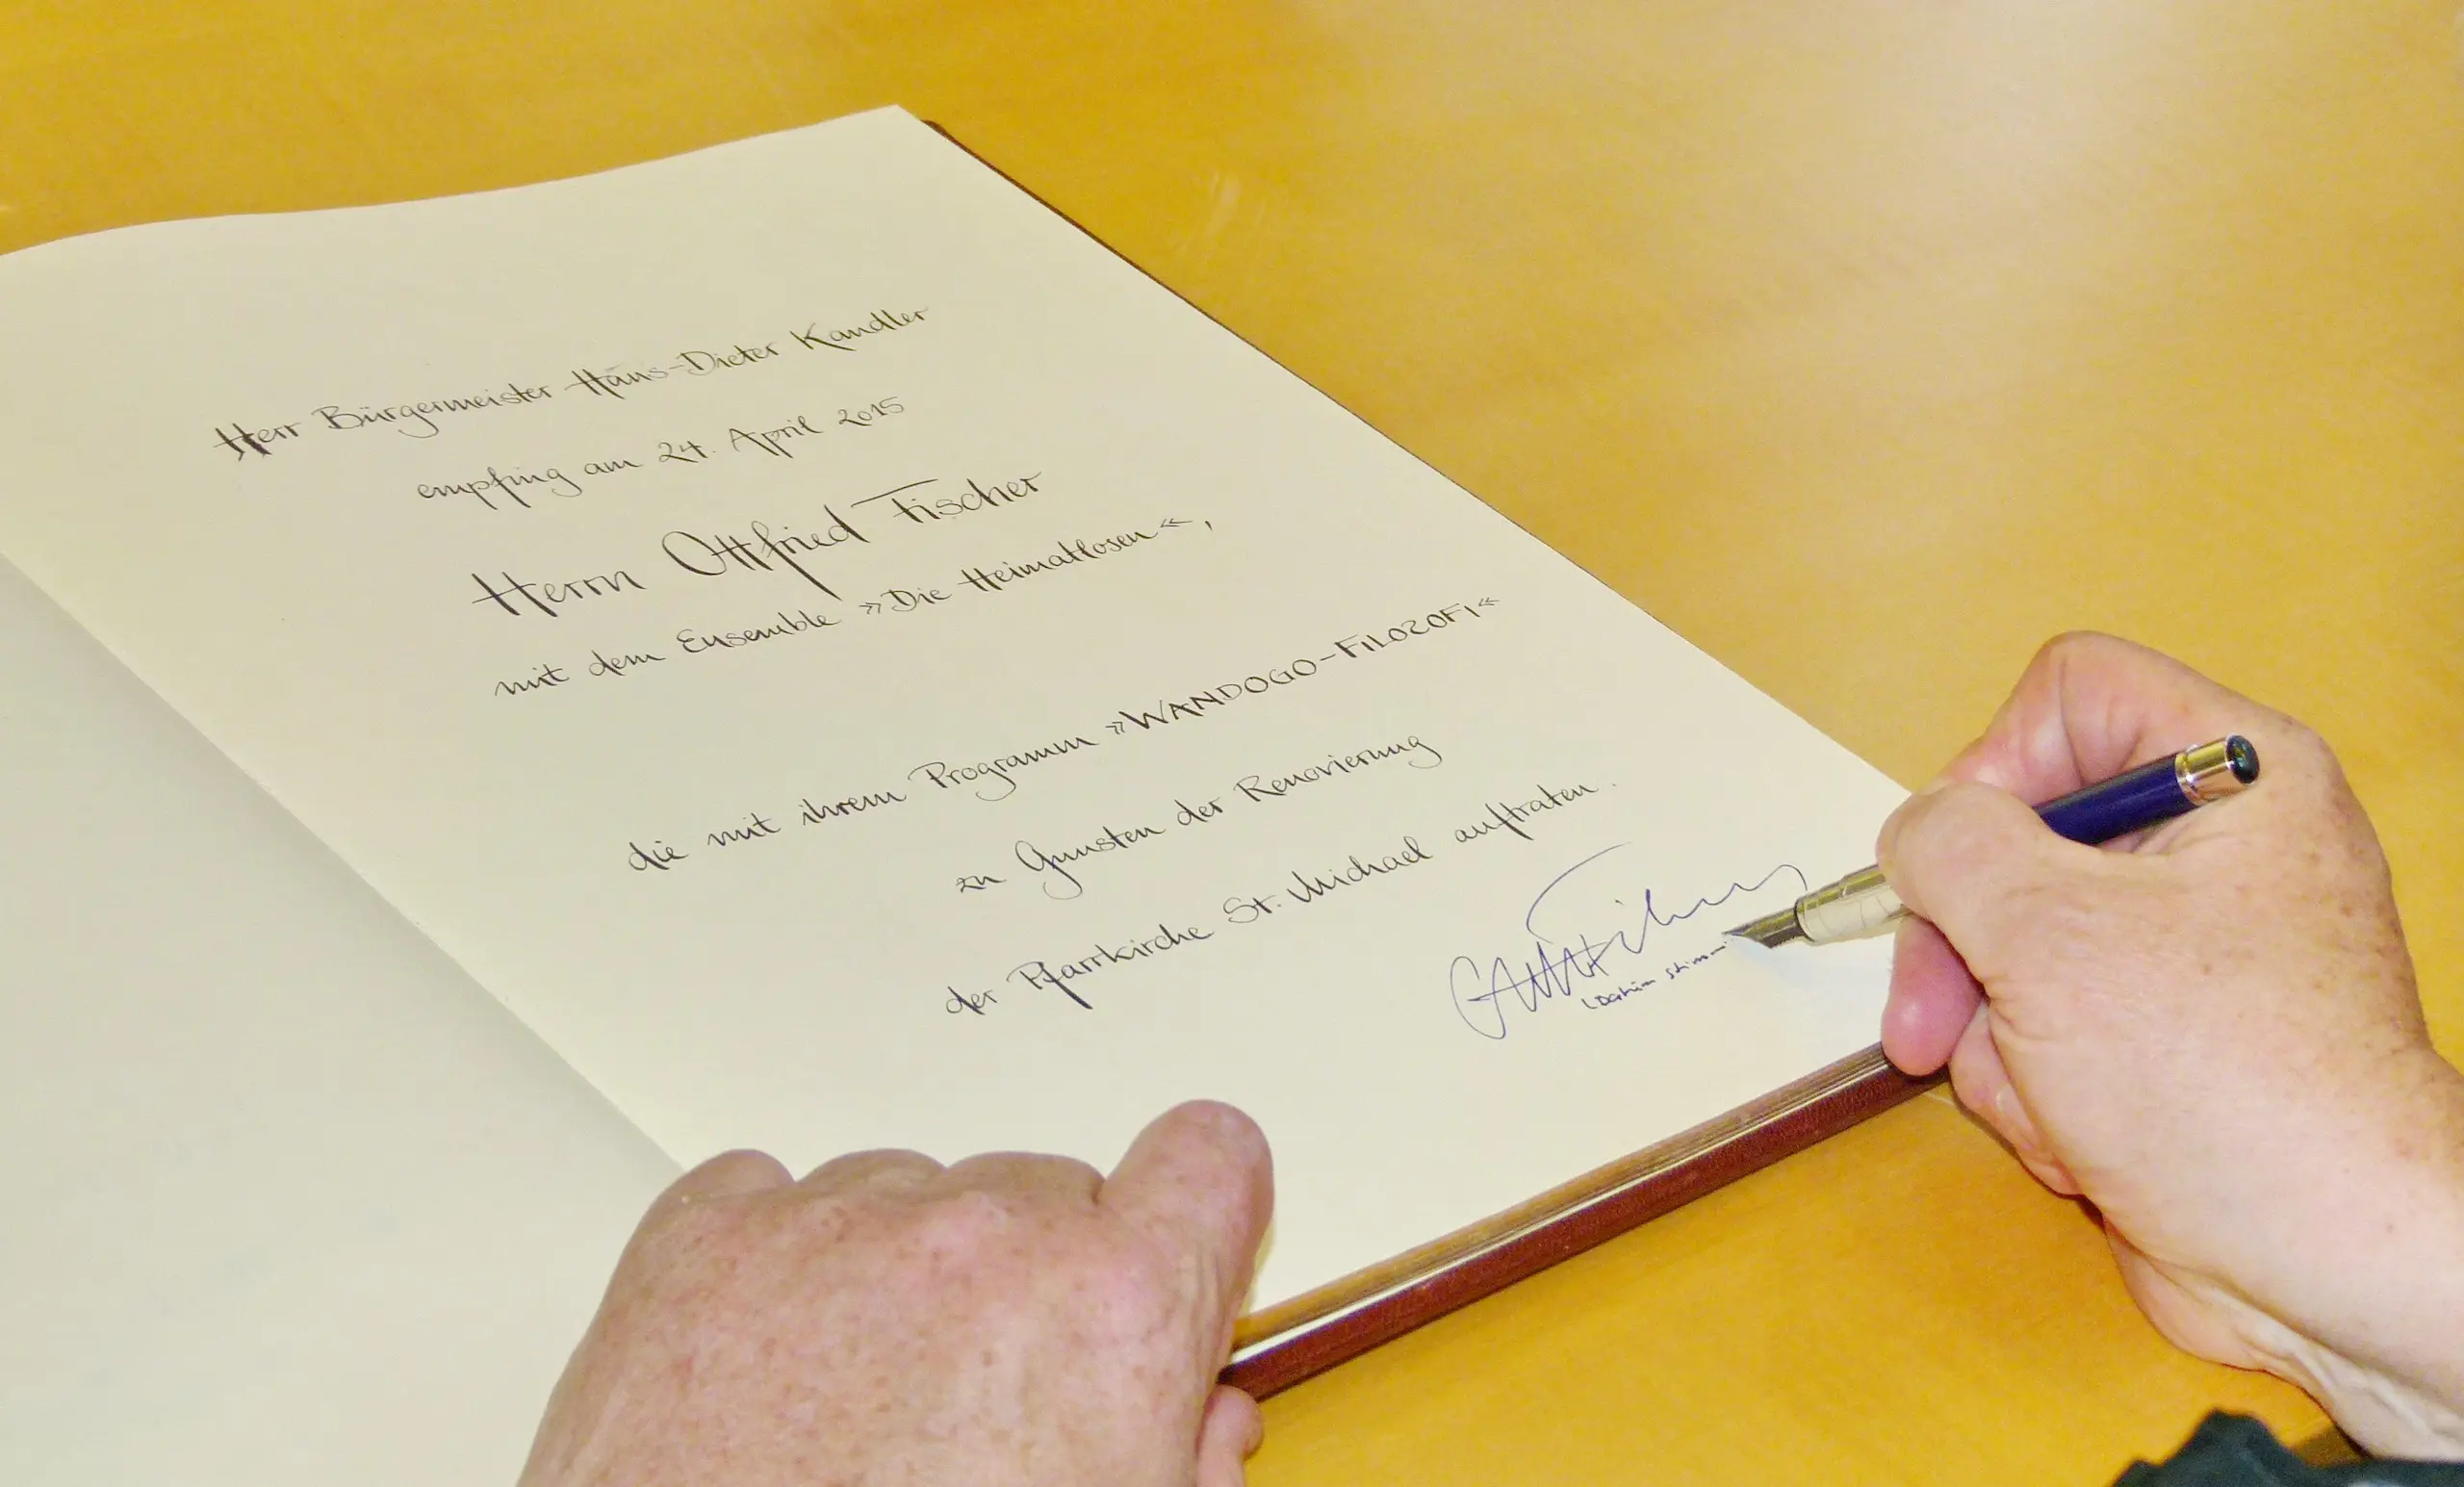 Herr Bürgermeister Hans-Dieter Kandler
empfing am 24. April 2015
Herrn Ottfried Fischer
mit dem Ensemble »Die Heimatlosen«,
die mit ihrem Programm »WANDOGO-FILOZOFI«
zu Gunsten der Renovierung
der Pfarrkirche St. Michael auftraten.